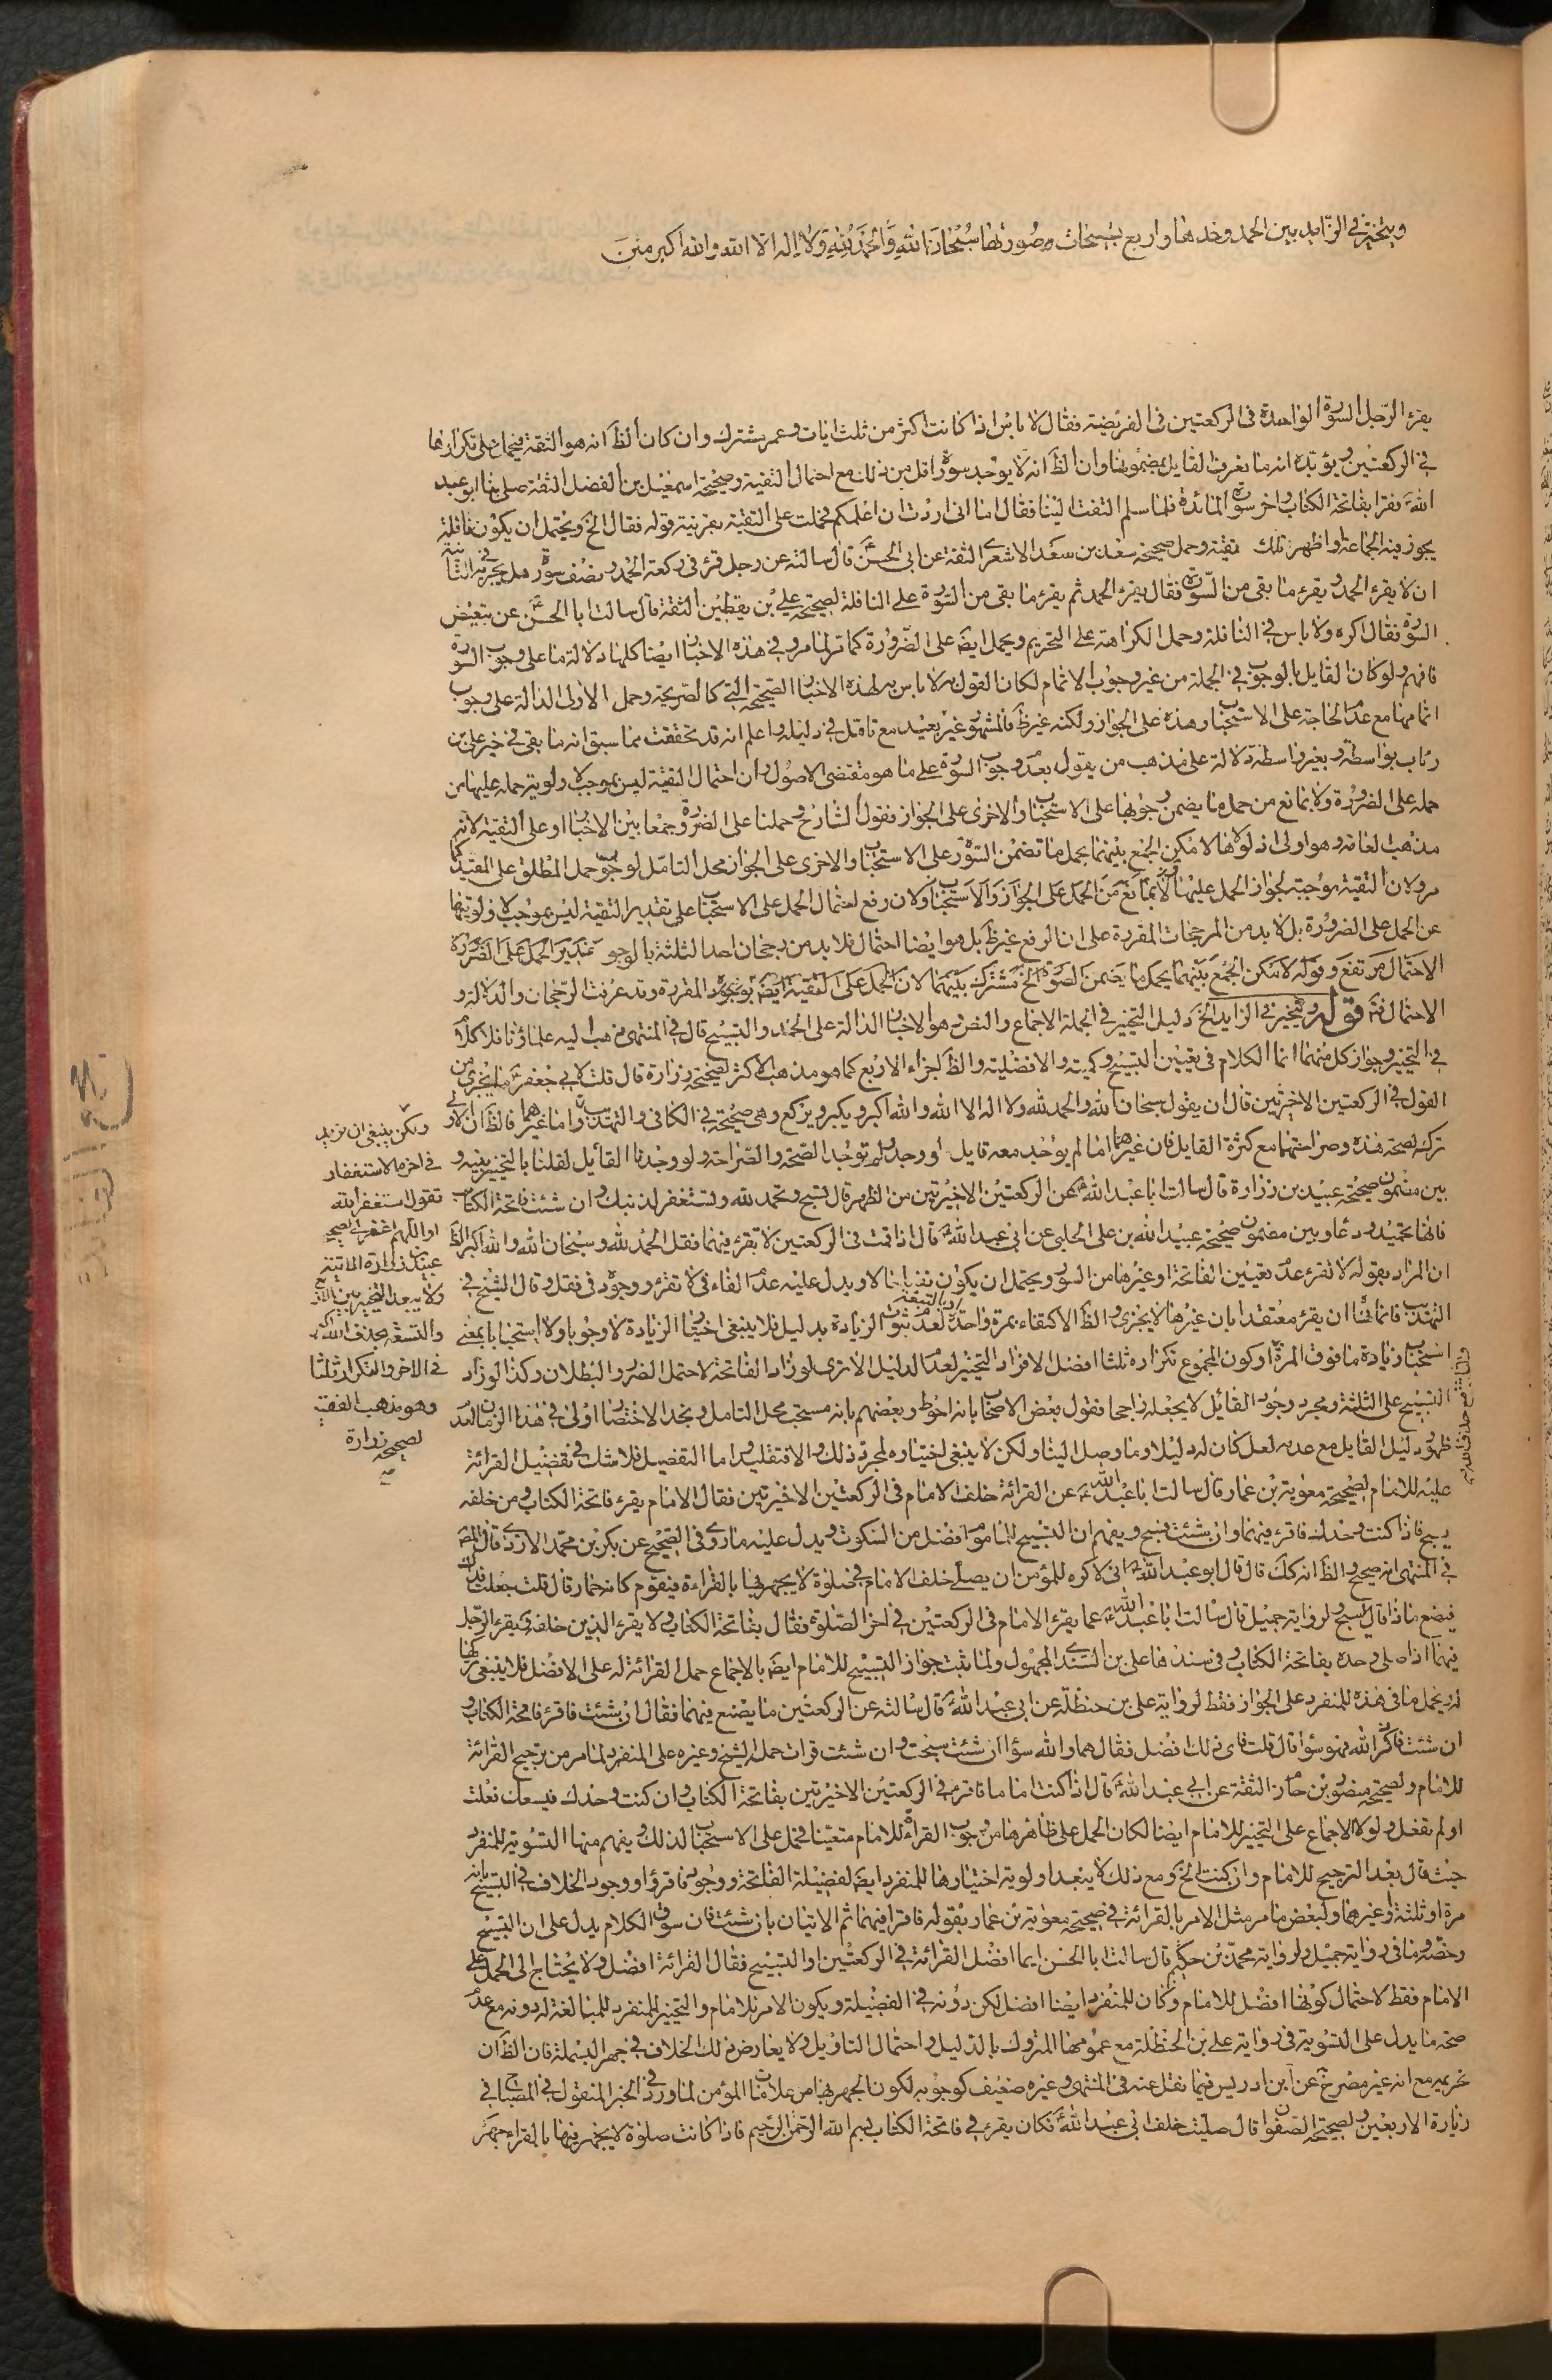 ويتخير في الزايد بين الحمد وحدها واربع تسبيحات وصورتها سبحان الله والحمد لله ولا اله الا الله والله اكبر
يقرء الرجل السورة الواحدة في الركعتين في الفريضة فقال لا باس اذا كانت اكثر من ثلث ايات وعمر مشترك وان كان الظ انه هو الثقة على تكرارها
في الركعتين ويؤيده انه ما نعرف القايل بمضمونها وان الظ انه لا يوجد سورة اقل من ذلك مع احتمال التقية وصحيحة اسمعيل بن الفضل الثقة صلى بنا ابو عبد
الله فقرا بفاتحة الكتاب واخر سورة المائدة فلما سلم التفت الينا فقال اما اني اردت ان اعلمكم فحملت على التقية بقرينة قوله فقال الخ ويحتمل ان يكون نافلة
يجوز فيه الجماعة واظهر تلك تقية وحمل صحيحة سعد بن سعد الاشعري الثقة عن ابي الحسن قال سالته عن رجل قرء في ركعة الحمد ونصف سورة هل يجزيه في الثانية
ان لا يقرء الحمد ويقرء ما بقي من السورة فقال يقرء الحمد ثم يقرء ما بقي من السورة على النافلة لصحيحة علي بن يقطين الثقة قال سالت ابا الحسن عن تبعيض
السورة فقال اكره ولا باس في النافلة وحمل الكراهة على التحريم ويحمل ايض على الضرورة كما مر لما مر وفي هذه الاخبار ايضا كلها دلالة ما على وجوب السورة
فافهم ولو كان القايل بالوجوب في الجملة من غير وجوب الاتمام لكان القول به لا باس به لهذه الاخبار الصحيحة التي كالصريحة وحمل الاولى الدالة على وجوب
اتمامها مع عدم الحاجة على الاستحباب وهذه على الجواز ولكنه غير ظ فالمشهور غير بعيد مع تامل في دليله واعلم انه قد تحققت مما سبق انه ما بقي في خبر علي بن
رئاب بواسطة وبغير واسطة دلالة على مذهب من يقول بعدم وجوب السورة على ما هو مقتضى الاصول وان احتمال التقية ليس بموجب لاولوية حمله عليها من
حمله على الضرورة ولا بمانع من حمل ما يضمن وجوبها على الاستحباب والاخرى على الجواز فقول الشارح وحملنا على الضرورة جمعا بين الاخبار او على التقية لانه
مذهب العامة وهو اولى اذ لولاها لامكن الجمع بينهما بحمل ما تضمن السورة على الاستحباب والاخرى على الجواز محل التامل لوجوب حمل المطلق على المقيد كما
مر ولان التقية موجبة لجواز الحمل عليها لا بمانع من الحمل على الجواز والاستحباب ولان رفع احتمال الحمل على الاستحباب على تقدير التقية ليس بموجب لاولويتها
عن الحمل على الضرورة بل لا بد من المرجحات المقررة على ان الرفع غير ظ بل هو ايضا احتمال فلا بد من رجحان احد الثلثة بالوجوه تقدير الحمل على الضرورة
الاحتمال مرتفع وقوله لامكن الجمع بينهما بحمل ما يضمن الصورة الخ مشترك بينهما لان الحمل على التقية ايض بوجود المقررة وقد عرفت الرجحان والدلالة و
الاحتمال فت قوله ويتخير في الزايد الخ دليل التخيير في الجملة الاجماع والنص وهو الاخبار الدالة على الحمد والتسبيح قال في المنتهى ذهب اليه علماؤنا فلا كلام
في التخيير وجواز كل منهما انما الكلام في تعيين التسبيح وكميته والافضلية والظ اجزاء الاربع كما هو مذهب الاكثر لصحيحة زرارة قال قلت لابي جعفر ما يجزي من
القول في الركعتين الاخيرتين قال ان يقول سبحان الله والحمد لله ولا اله الا الله والله اكبر ويكبر ويركع وهي صحيحة في الكافي والتهذيب واما غيرهما فالظ ان الاولى
تركه لصحة هذه وصراحتها مع كثرة القايل فان غيرها اما لم يوجد معه قايل او وجد ولم توجد الصحة والصراحة ولو وجدنا القائل لقلنا بالتخيير بينه و
بين مضمون صحيحة عبيد بن زرارة قال سالت ابا عبد الله عن الركعتين الاخيرتين من الظهر قال تسبح وتحمد لله وتستغفر لذنبك وان شئت فاتحة الكتاب
فانها تحميد ودعاء وبين مضمون صحيحة عبيد الله بن علي الحلبي عن ابي عبد الله قال اذا قمت في الركعتين لا تقرء فيهما فقل الحمد لله وسبحان الله والله اكبر الظ
ان المراد بقوله لا تقرء عدم تعيين الفاتحة او غيرها من السور ويحتمل ان يكون نفيا حالا ويدل عليه عدم الفاء في لا تقرء ووجوده في فقل وقال الشيخ في
التهذيب فانما ان يقرء معتقدا بان غيرها لا يجزي والظ الاكتفاء بمرة واحدة لعدم ثبوت الزيادة بدليل فلا ينبغي اختيار الزيادة لا وجوبا ولا استحبابا بمعنى
استحباب زيادة ما فوق المرة او كون المجموع تكراره ثلثا افضل الافراد التخيير لعدم الدليل الا ترى لو زاد الفاتحة لاحتمل الضرر والبطلان وكذا لو زاد
التسبيح على الثلثة ومجرد وجود القائل لا يجعله راجحا فقول بعض الاصحاب بانه احوط وبعضهم بانه مستحب محل التامل ونجد الاختصار اولى في هذا الزمان لعدم
ظهور دليل القايل مع عدمه لعل كان له دليل وما وصل الينا ولكن لا ينبغي اختياره لمجرد ذلك والا فتقليد اما التفصيل فلا شك في تفضيل القرائة
عليه للامام لصحيحة معوية بن عمار قال سالت ابا عبد الله عن القرائة خلف الامام في الركعتين الاخيرتين فقال الامام يقرء فاتحة الكتاب ومن خلفه
يسبح فاذا كنت وحدك فاقرء فيهما وان شئت فسبح ويفهم ان التسبيح للماموم افضل من السكوت ويدل عليه ما روي في الصحيح عن بكر بن محمد الازدي قال المص
في المنتهى انه صحيح والظ انه كك قال قال ابو عبد الله اني لاكره للمؤمن ان يصلي خلف الامام في صلوة لا يجهر فيها بالقراءة فيقوم كانه حمار قال قلت جعلت فداك
فيصنع ماذا قال يسبح ولرواية جميل قال سالت ابا عبد الله عما يقرء الامام في الركعتين في اخر الصلوة فقال بفاتحة الكتاب ولا يقرء الذين خلفه ويقرء الرجل
فيهما اذا صلى وحده بفاتحة الكتاب وفي سندها علي بن السندي المجهول ولما ثبت جواز التسبيح للامام ايض بالاجماع حمل القرائة له على الافضل فلا ينبغي تركها
له ويحمل ما في هذه للمنفرد على الجواز فقط لرواية علي بن حنظلة عن ابي عبد الله قال سالته عن الركعتين ما يصنع فيهما فقال ان شئت فاقرء فاتحة الكتاب و
ان شئت فاذكر الله فهو سواء قال قلت فاي ذلك افضل فقال هما والله سواء ان شئت سبحت وان شئت قرات حمله الشيخ وغيره على المنفرد لما مر من ترجيح القرائة
للامام ولصحيحة منصور بن حازم الثقة عن ابي عبد الله قال اذا كنت اماما فاقرء في الركعتين الاخيرتين بفاتحة الكتاب وان كنت وحدك فيسعك فعلت
او لم تفعل ولولا الاجماع على التخيير للامام ايضا لكان الحمل على ظاهرها من وجوب القراءة للامام متعينا فحمل على الاستحباب لذلك ويفهم منها التسوية للمنفرد
حيث قال بعد الترجيح للامام وان كنت الخ ومع ذلك لا يبعد اولوية اختيارها للمنفرد ايض لفضيلة الفاتحة ووجوب فاقرؤا ووجود الخلاف في التسبيح بانه
مرة او ثلثة او غيرهما ولبعض ما مر مثل الامر بالقرائة في صحيحة معوية بن عمار بقوله فاقرا فيهما ثم الاتيان بان شئت فان سوق الكلام يدل على ان التسبيح
رخصة وما في رواية جميل ولرواية محمد بن حكيم قال سالت ابا الحسن ايما افضل القرائة في الركعتين او التسبيح فقال القرائة افضل ولا يحتاج الى الحمل على
الامام فقط لاحتمال كونها افضل للامام وكان للمنفرد ايضا افضل لكن دونه في الفضيلة ويكون الامر للامام والتخيير للمنفرد للمبالغة له دونه مع عدم
صحة ما يدل على التسوية في رواية علي بن الحنظلة مع عمومها المتروك بالدليل واحتمال التاويل ولا يعارض ذلك الخلاف في جهر البسملة فان الظ ان
تحريمه مع انه غير مصرح عن ابن ادريس فيما نقل عنه في المنتهى وغيره ضعيف كوجوبه لكون الجهر بها من علامات المؤمن لما ورد في الخبر المنقول في المصباح في
زيارة الاربعين ولصحيحة الصفوان قال صليت خلف ابي عبد الله فكان يقرء في فاتحة الكتاب بسم الله الرحمن الرحيم فاذا كانت صلوة لا يجهر فيها بالقراءة جهر
ولكن ينبغي ان يزيد
في اخره الاستغفار
تقول استغفر الله
او اللهم اغفر لي لصحيحة
عبيد بن زرارة الاتية
ولا يبعد التخيير بين
والتسعة بحذف الله اكبر
في الاخر والتكرار ثلثا
وهو مذهب الفقيه
لصحيحة زرارة